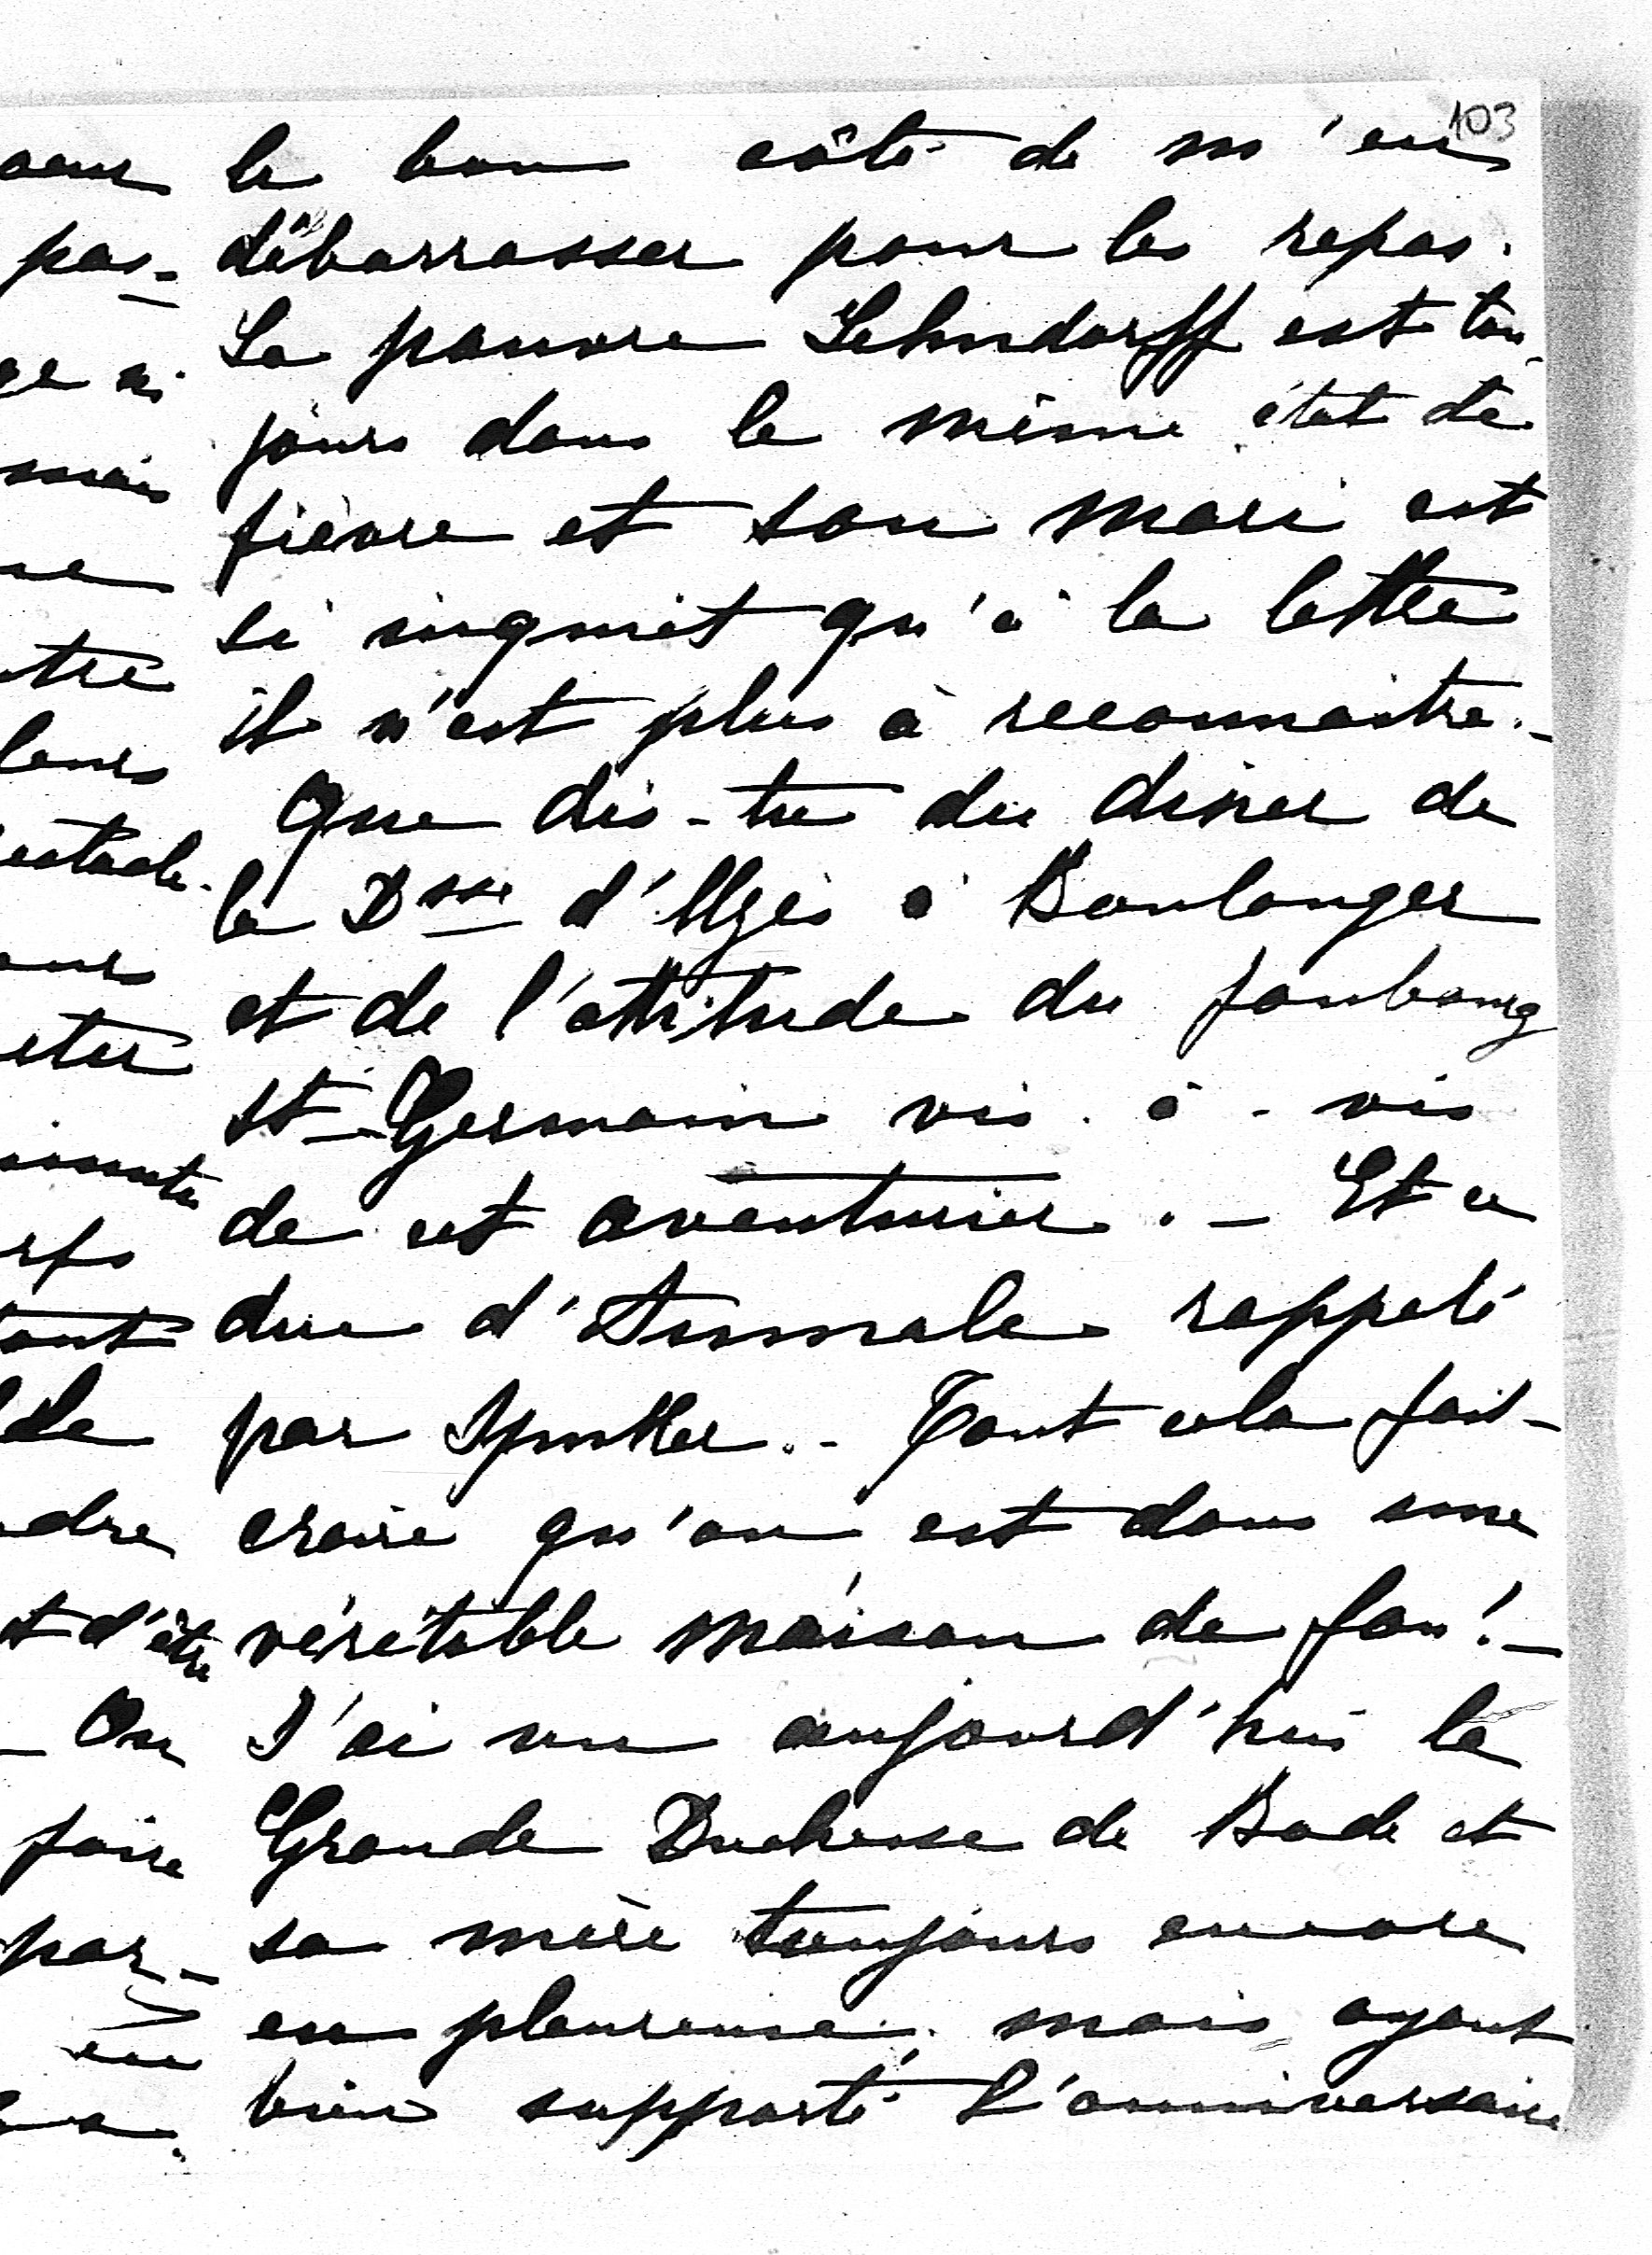 103
le bon côté de m'en
débarrasser pour les repas.
La pauvre Lehndorff est tou-
jours dans le même état de
fièvre et son mari est
si inquiet qu'à la lettre
il n'est plus à reconnaitre. -
Que dis-tu du diner de
la Dsse d'Uzès à Boulanger
et de l'attitude du faubourg
St-Germain vis-à-vis
de cet aventurier. - Et ce
duc d'Aumale rappelé
par Spuller. - Tout cela fait
croire qu'on est dans une
véritable maison de fou! -
J'ai vu aujourd'hui la
Grande Duchesse de Bade et
sa mère toujours encore
en pleureuse, mais ayant
bien supporté l'anniversaire
pas-
mais
tre
leurs
faire
par-
t d'être
- On
en